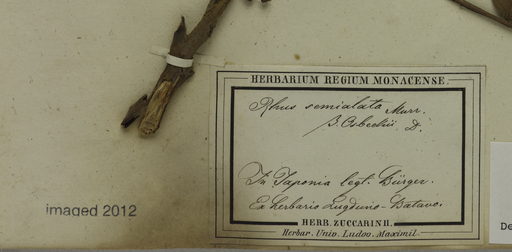 HERBARIUM REGIUM MONACENSE.
Rhus semialata Murr.
β. Osbeckii D.
In Japonia legt. Bürger.
Ex herbario Lugduno-Batavo.
HERB. ZUCCARINII.
Herbar. Univ. Ludov. Maximil.
imaged 2012
De